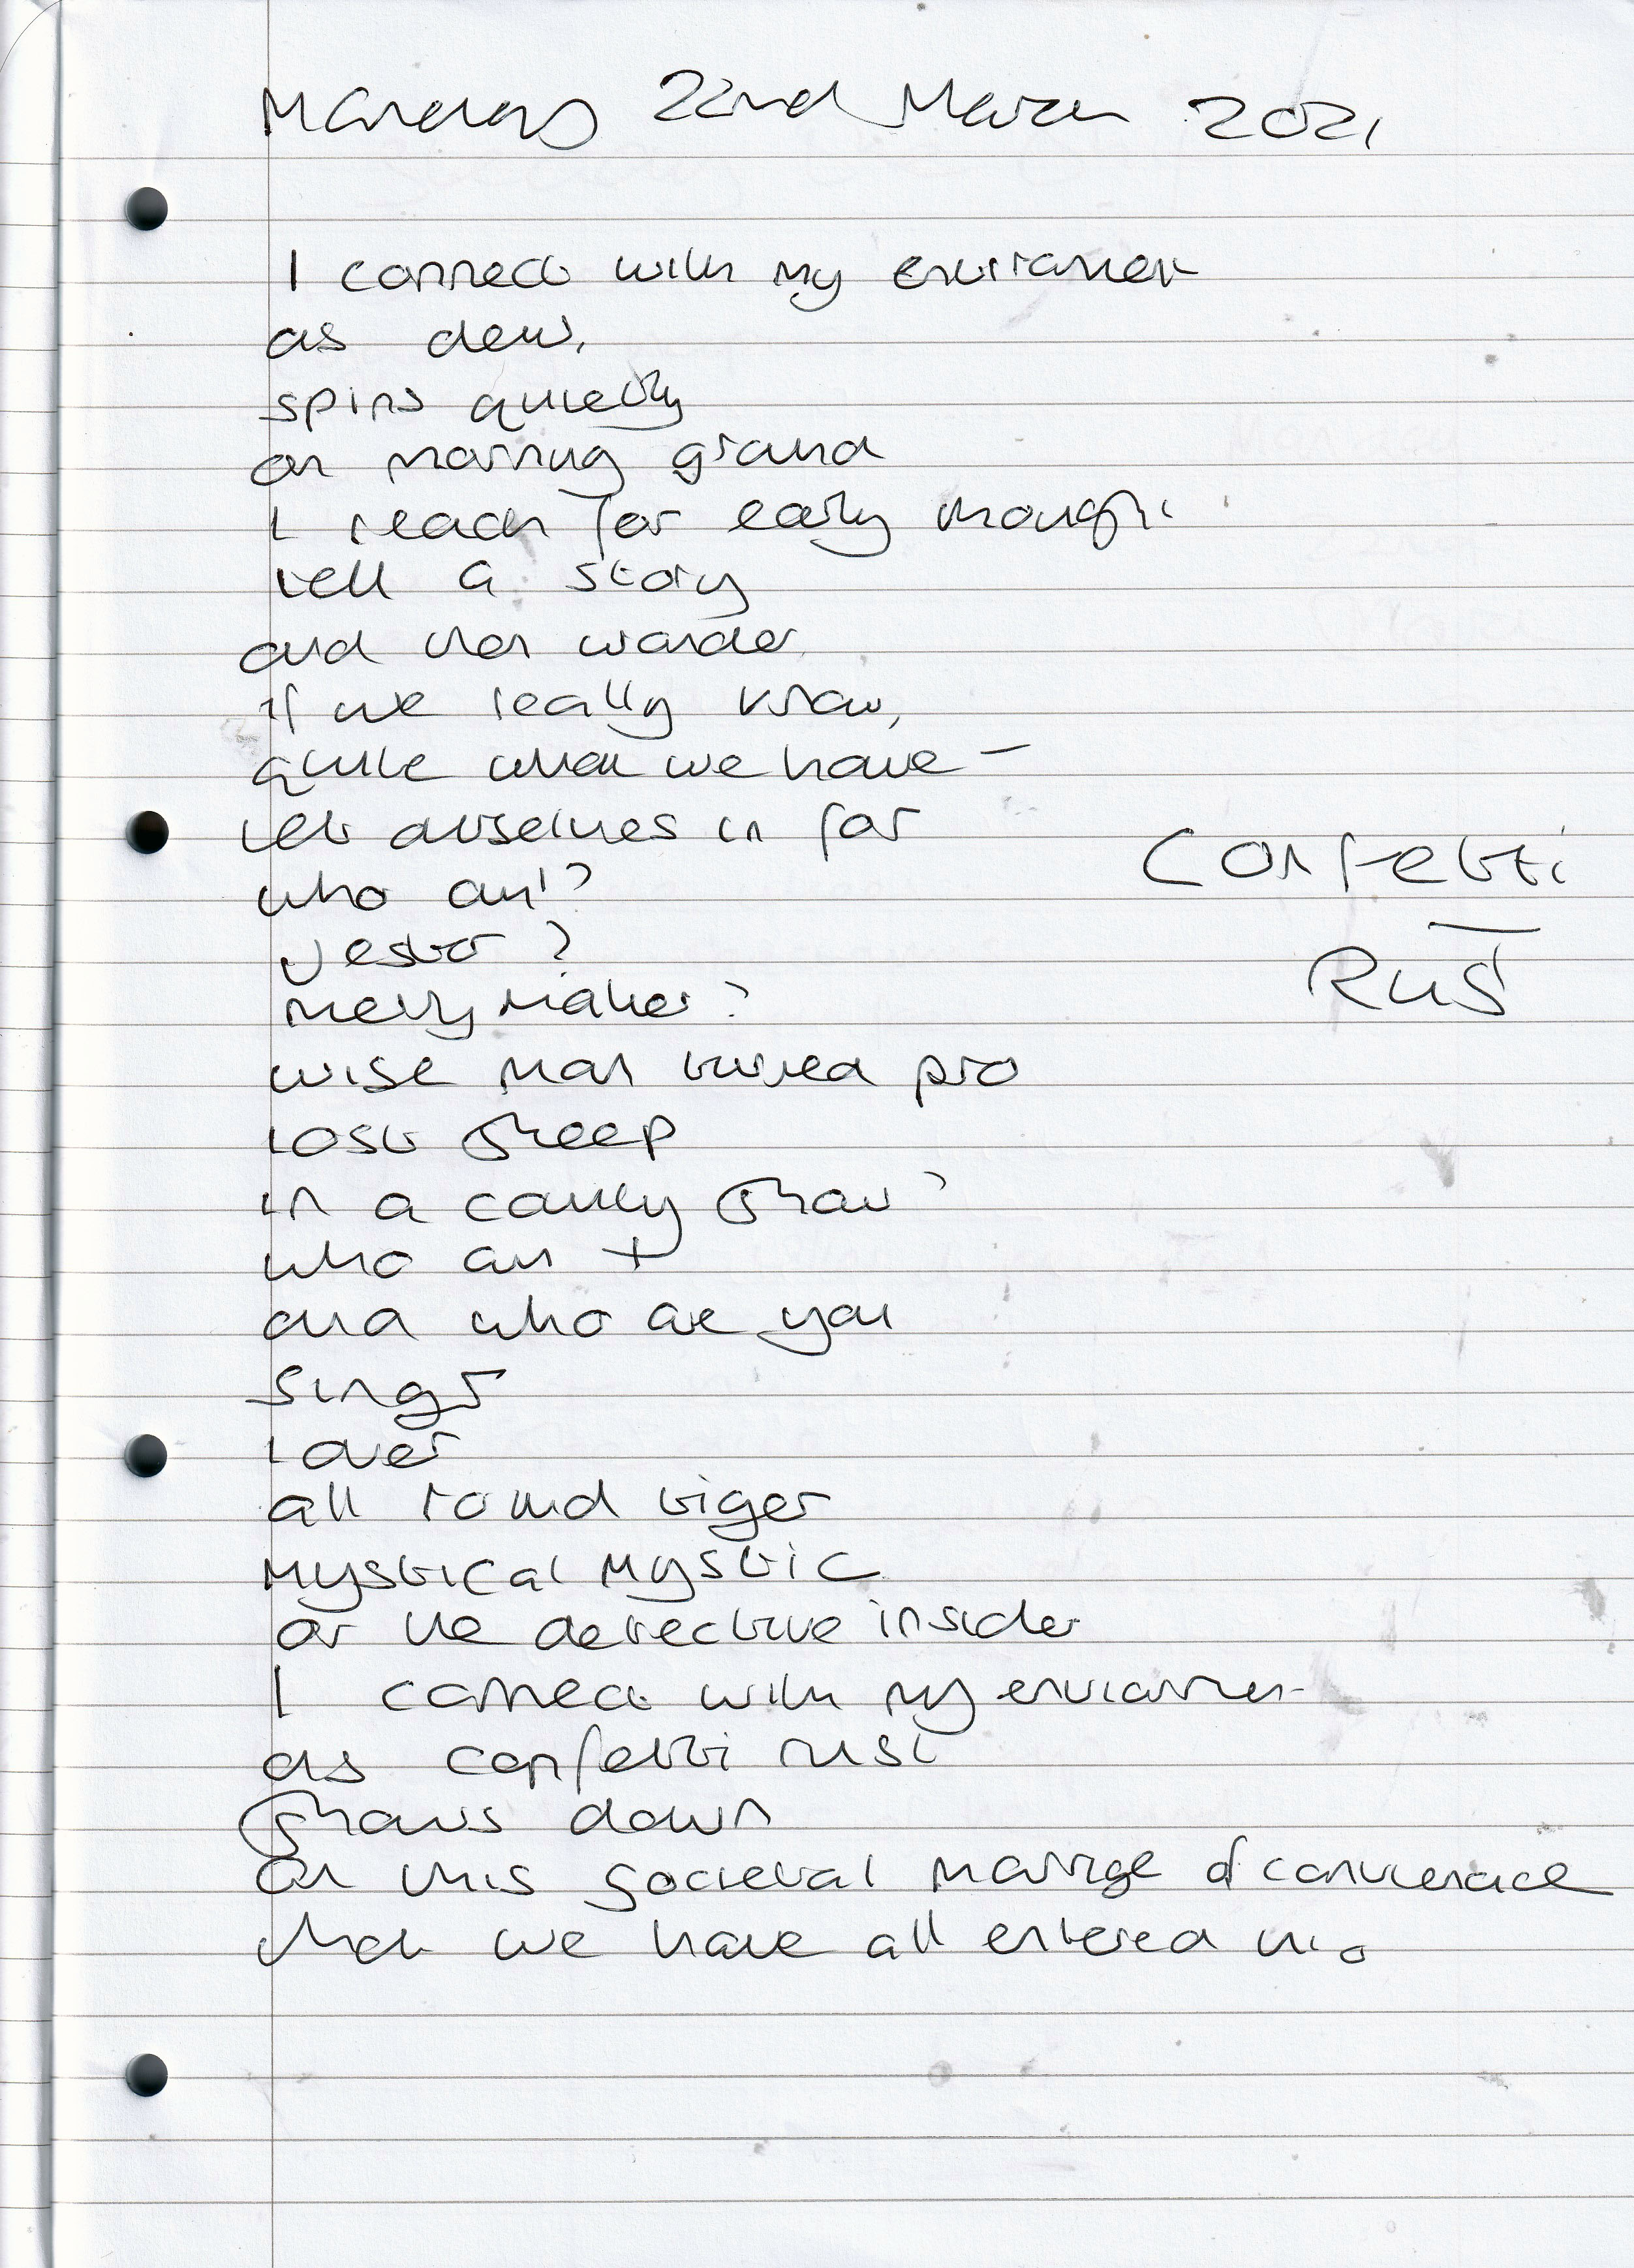 Monday 22nd March 2021
I connect with my environment
as dew,
spins quietly
on morning ground
I reach for early thought
tell a story
and then wonder
if we really know,
quite what we have –
let ourselves in for
who am I?
Jester?
merry maker?
wise man turned pro
lost sheep
in a county show?
who am I
and who are you
singer
lover
all round tiger
mystical mystic
or the detective insider
I connect with my environment
as confetti rust
throws down
on this societal marriage of convenience
that we have all entered into
Confetti
Rust